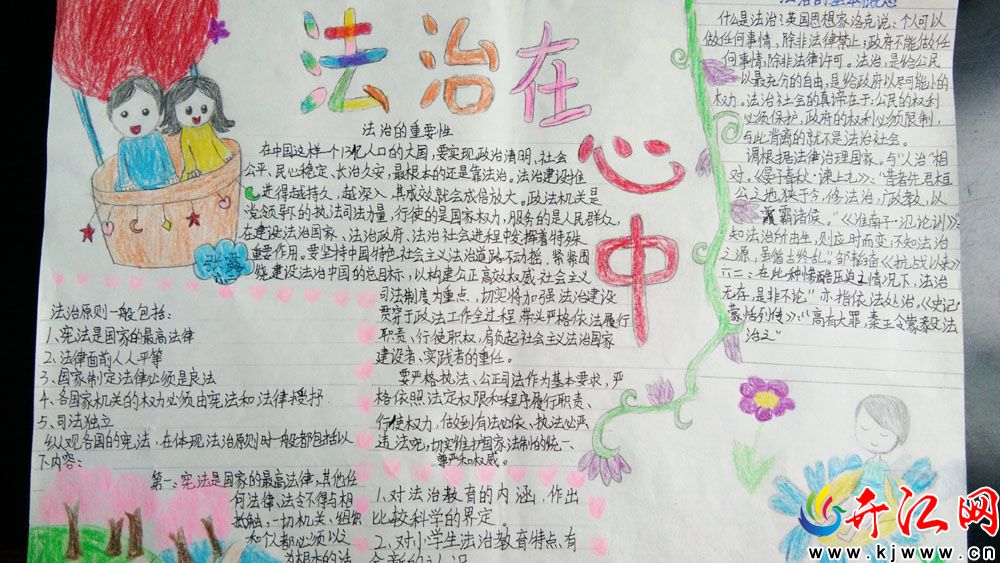 法治在心中
法治的重要性
在中国这样一个13亿人口的大国,要实现政治清明、社会
公平、民心稳定、长治久安,最根本的还是靠法治。法治建设推
进得越持久,越深入,其成效就会成倍放大。政法机关是
党领导下的执法司法力量,行使的是国家权力,服务的是人民群众,
在建设法治国家、法治政府、法治社会进程中发挥着特殊
重要作用。要坚持中国特色社会主义法治道路不动摇,紧紧围
绕建设法治中国的总目标,以构建公正高效权威社会主义
司法制度为重点,切实将加强法治建设
贯穿于政法工作全过程,带头严格依法履行
职责、行使职权,肩负起社会主义法治国家
建设者、实践者的重任。
要严格执法、公正司法作为基本要求,严
格依照法定权限和程序履行职责、
行使权力,做到有法必依、执法必严
违法究,切实维护国家法制的统一、
尊严和权威。
法治原则一般包括:
1、宪法是国家的最高法律
2、法律面前人人平等
3、国家制定法律必须是良法
4、各国家机关的权力必须由宪法和法律授予
5、司法独立
纵观各国的宪法,在体现法治原则时一般都包括以
下内容:
第一、宪法是国家的最高法律,其他任
何法律、法令不得与相
抵触,一切机关、组织
和个人都必须以
为根本的活
1、对法治教育的内涵,作出
比较科学的界定。
2、对小学生法治教育特点有
全新的认识
法治的基本概念
什么是法治?英国思想家洛克说:个人可以
做任何事情,除非法律禁止;政府不能做任
何事情,除非法律许可。法治,是给公民
以最充分的自由,是给政府以尽可能小的
权力。法治社会的真谛在于:公民的权利
必须保护,政府的权利必须限制,
与此背离的就不是法治社会。
谓根据法律治理国家。与“人治”相
对。《晏子春秋·谏上九》:“昔者先君桓
公之地狭于今,修法治,广政教,以
霸诸侯。”《淮南子·氾论训》:
知法治所由生,则应时而变;不知法治
之源,虽循古终乱。”邹韬奋《抗战以来》
六二:在此种情形压迫之情况下,法治
无存,是非不论。”亦指依法处治。《史记·
蒙恬列传》:“高有大罪,秦王令蒙毅法
治之”
开江网
www.kjwww.cn